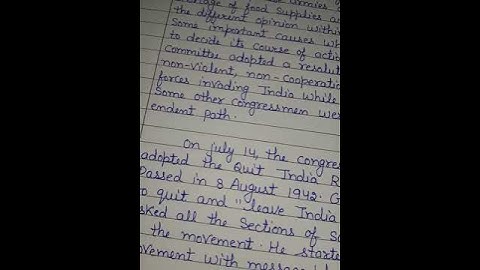 of food supplies
the different opinion within
Some important causes
to decide its course of actio
Committee adopted a resolut
non-violent, non-cooperatio
forces invading India while
Some other congressmen wer
endent path.
On july 14, the congres
adopted the Quit India R
Passed in 8 August 1942. G
o quit and "leave India
sked all the Sections of S
the movement. He starte
ovement with messag